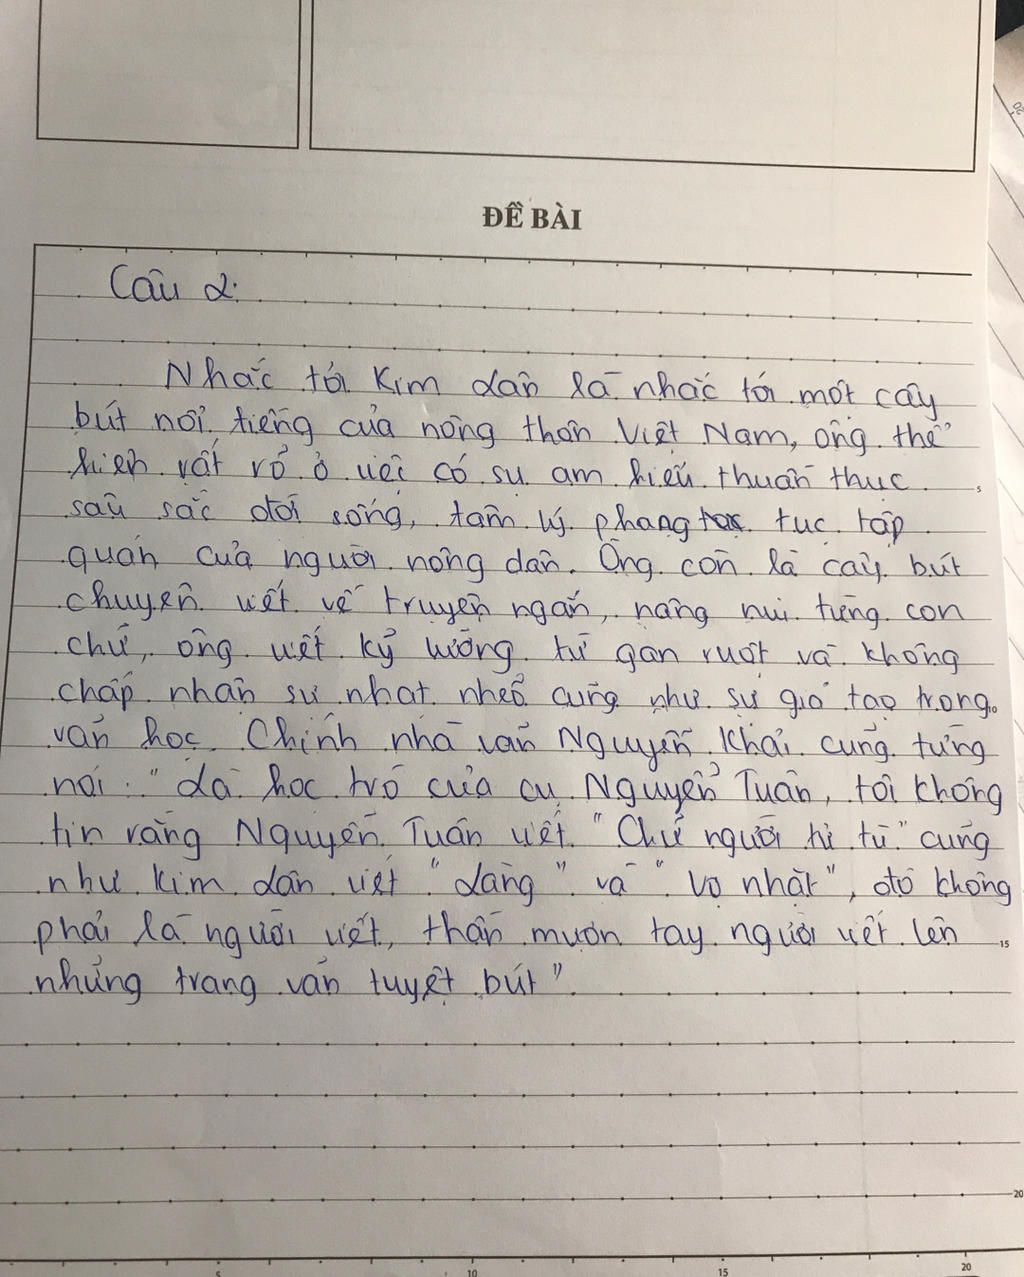 20
ĐỀ BÀI
Câu 2:
Nhắc tới Kim Lân là nhắc tới một cây
bút nổi tiếng của nông thôn Việt Nam, ông thể
hiện rất rõ ở việc có sự am hiểu thuần thục
5
sâu sắc đời sống, tâm lý phong tục tập
quán của người nông dân. Ông còn là cây bút
chuyên viết về truyện ngắn, nâng niu từng con
chữ, ông viết kỹ lưỡng từ gan ruột và không
chấp nhận sự nhạt nhẽo cũng như sự giả tạo trong
10
văn học. Chính nhà văn Nguyễn Khải cũng từng
nói: "Là học trò của cụ Nguyễn Tuân, tôi không
tin rằng Nguyễn Tuân viết "Chữ người tử tù" cũng
như Kim Lân viết "Làng" và "Vợ nhặt", đó không
phải là người viết, thần mượn tay người viết lên
15
những trang văn tuyệt bút".
20
5
10
15
20